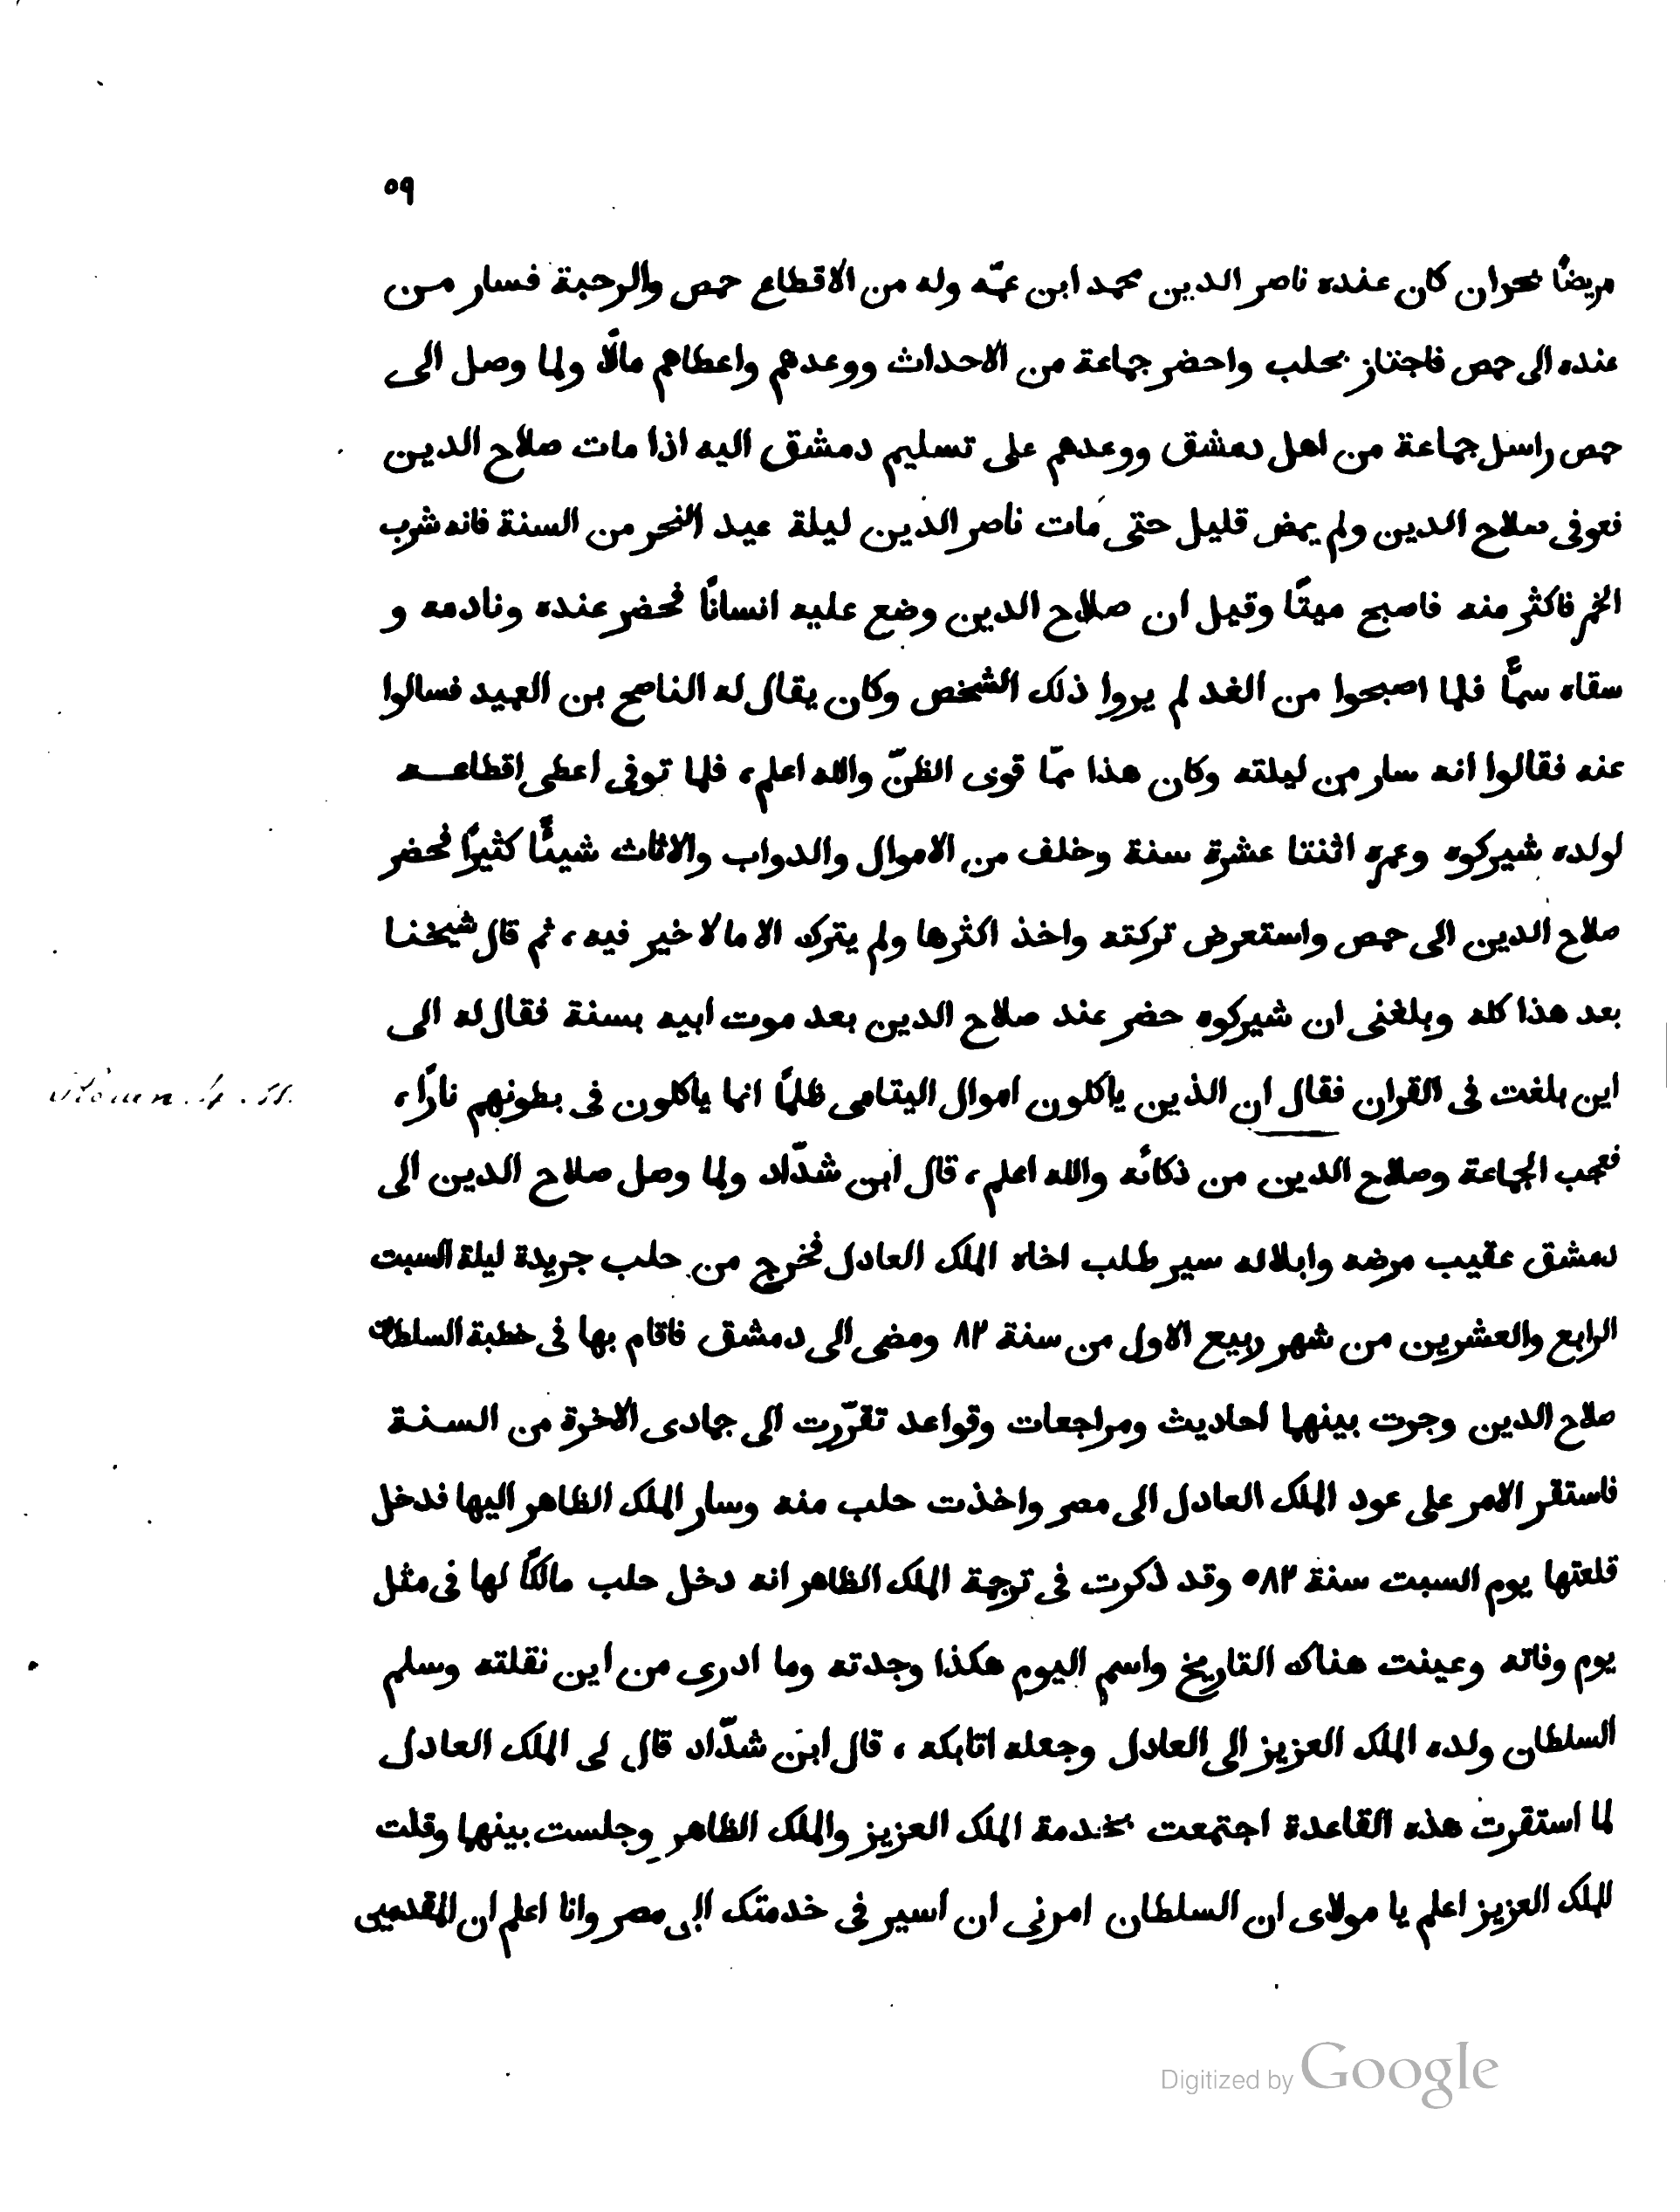 ٥٩
مريضًا بحران كان عنده ناصر الدين محمد ابن عمّه وله من الاقطاع حمص والرحبة فسار من
عنده الى حمص فاجتاز بحلب واحضر جماعة من الاحداث ووعدهم واعطاهم مالًا ولما وصل الى
حمص راسل جماعة من اهل دمشق ووعدهم على تسليم دمشق اليه اذا مات صلاح الدين
فعوفى صلاح الدين ولم يمض قليل حتى مات ناصر الدين ليلة عيد النحر من السنة فانه شرب
الخمر فاكثر منه فاصبح ميتًا وقيل ان صلاح الدين وضع عليه انسانًا فحضر عنده ونادمه و
سقاه سمًّا فلما اصبحوا من الغد لم يروا ذلك الشخص وكان يقال له الناصح بن العميد فسالوا
عنه فقالوا انه سار من ليلته وكان هذا ممّا قوى الظنّ والله اعلم، فلما توفى اعطى اقطاعه
لولده شيركوه وعمره اثنتا عشرة سنة وخلف من الاموال والدواب والاثاث شيئًا كثيرًا فحضر
صلاح الدين الى حمص واستعرض تركته واخذ اكثرها ولم يترك الا ما لا خير فيه، ثم قال شيخنا
بعد هذا كله وبلغنى ان شيركوه حضر عند صلاح الدين بعد موت ابيه بسنة فقال له الى
اين بلغت فى القران فقال ان الذين ياكلون اموال اليتامى ظلمًا انما ياكلون فى بطونهم نارًا،
فعجب الجماعة وصلاح الدين من ذكائه والله اعلم، قال ابن شدّاد ولما وصل صلاح الدين الى
دمشق عقيب مرضه وابلاله سير طلب اخاه الملك العادل فخرج من حلب جريدة ليلة السبت
الرابع والعشرين من شهر ربيع الاول من سنة ٨٢ ومضى الى دمشق فاقام بها فى خطبة السلطان
صلاح الدين وجرت بينهما احاديث ومراجعات وقواعد تقرّرت الى جمادى الاخرة من السنة
فاستقر الامر على عود الملك العادل الى مصر واخذت حلب منه وسار الملك الظاهر اليها فدخل
قلعتها يوم السبت سنة ٥٨٢ وقد ذكرت فى ترجمة الملك الظاهر انه دخل حلب مالكًا لها فى مثل
يوم وفاته وعينت هناك التاريخ واسم اليوم هكذا وجدته وما ادرى من اين نقلته وسلم
السلطان ولده الملك العزيز الى العادل وجعله اتابكه، قال ابن شدّاد قال لى الملك العادل
لما استقرت هذه القاعدة اجتمعت بخدمة الملك العزيز والملك الظاهر وجلست بينهما وقلت
للملك العزيز اعلم يا مولاى ان السلطان امرنى ان اسير فى خدمتك الى مصر وانا اعلم ان المفسدين
Digitized by Google